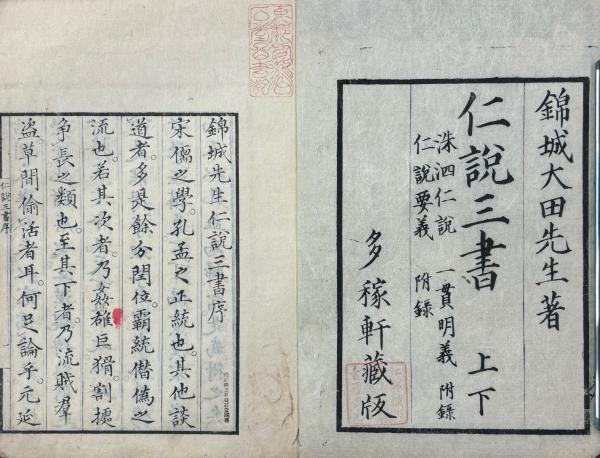 錦城大田先生著
仁說三書 上下
洙泗仁說 一貫明義 附錄
仁說要義 附錄
多稼軒藏版
錦城先生仁說三書序
宋儒之學。孔孟之正統也。其他談
道者。多是餘分閏位。霸統僭僞之
流也。若其次者。乃姦雄巨猾。割據
爭長之類也。至其下者。乃流賊羣
盜。草間偷活者耳。何足論乎。元延
仁說三書序